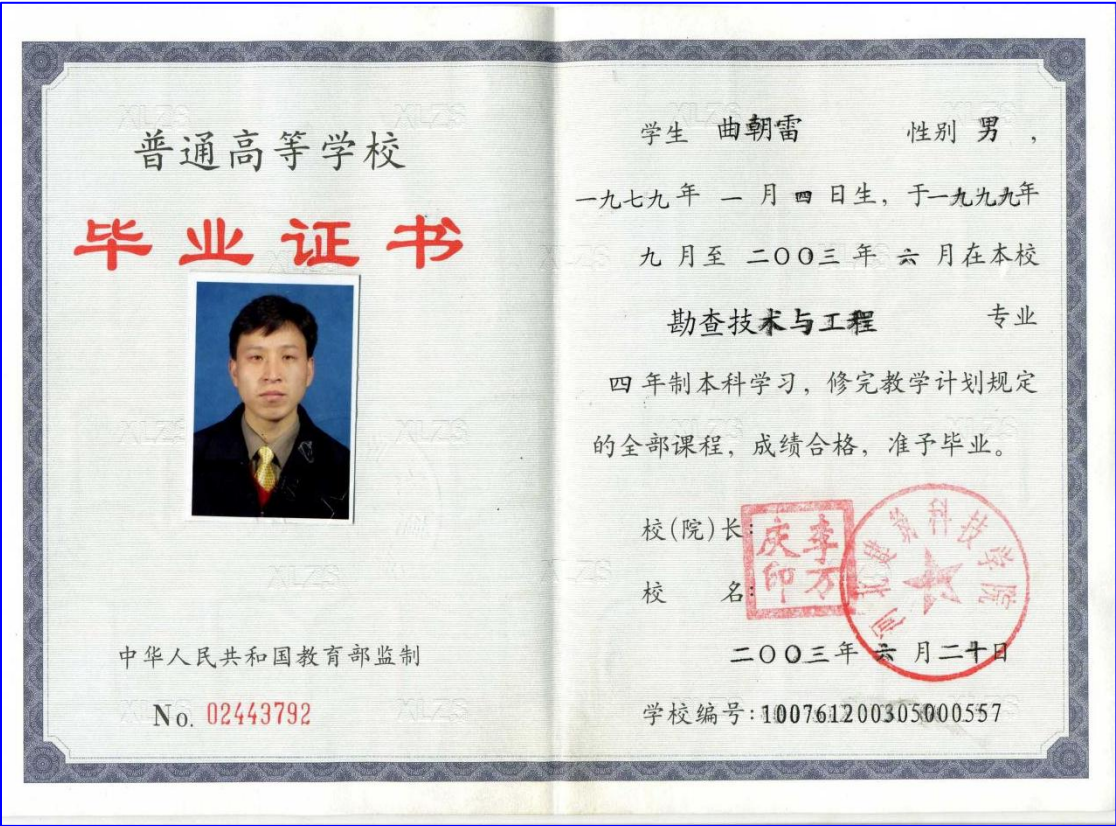 普通高等学校
毕业证书
中华人民共和国教育部监制
No. 02443792
学生 曲朝雷 性别 男，
一九七九年 一 月 四 日生，于一九九九年
九 月至 二〇〇三 年 六 月在本校
勘查技术与工程 专业
四 年制本科学习，修完教学计划规定
的全部课程，成绩合格，准予毕业。
校(院)长：
李万庆印
校 名：
河北建筑科技学院
二〇〇三年 六 月二十日
学校编号:100761200305000557
XLZS